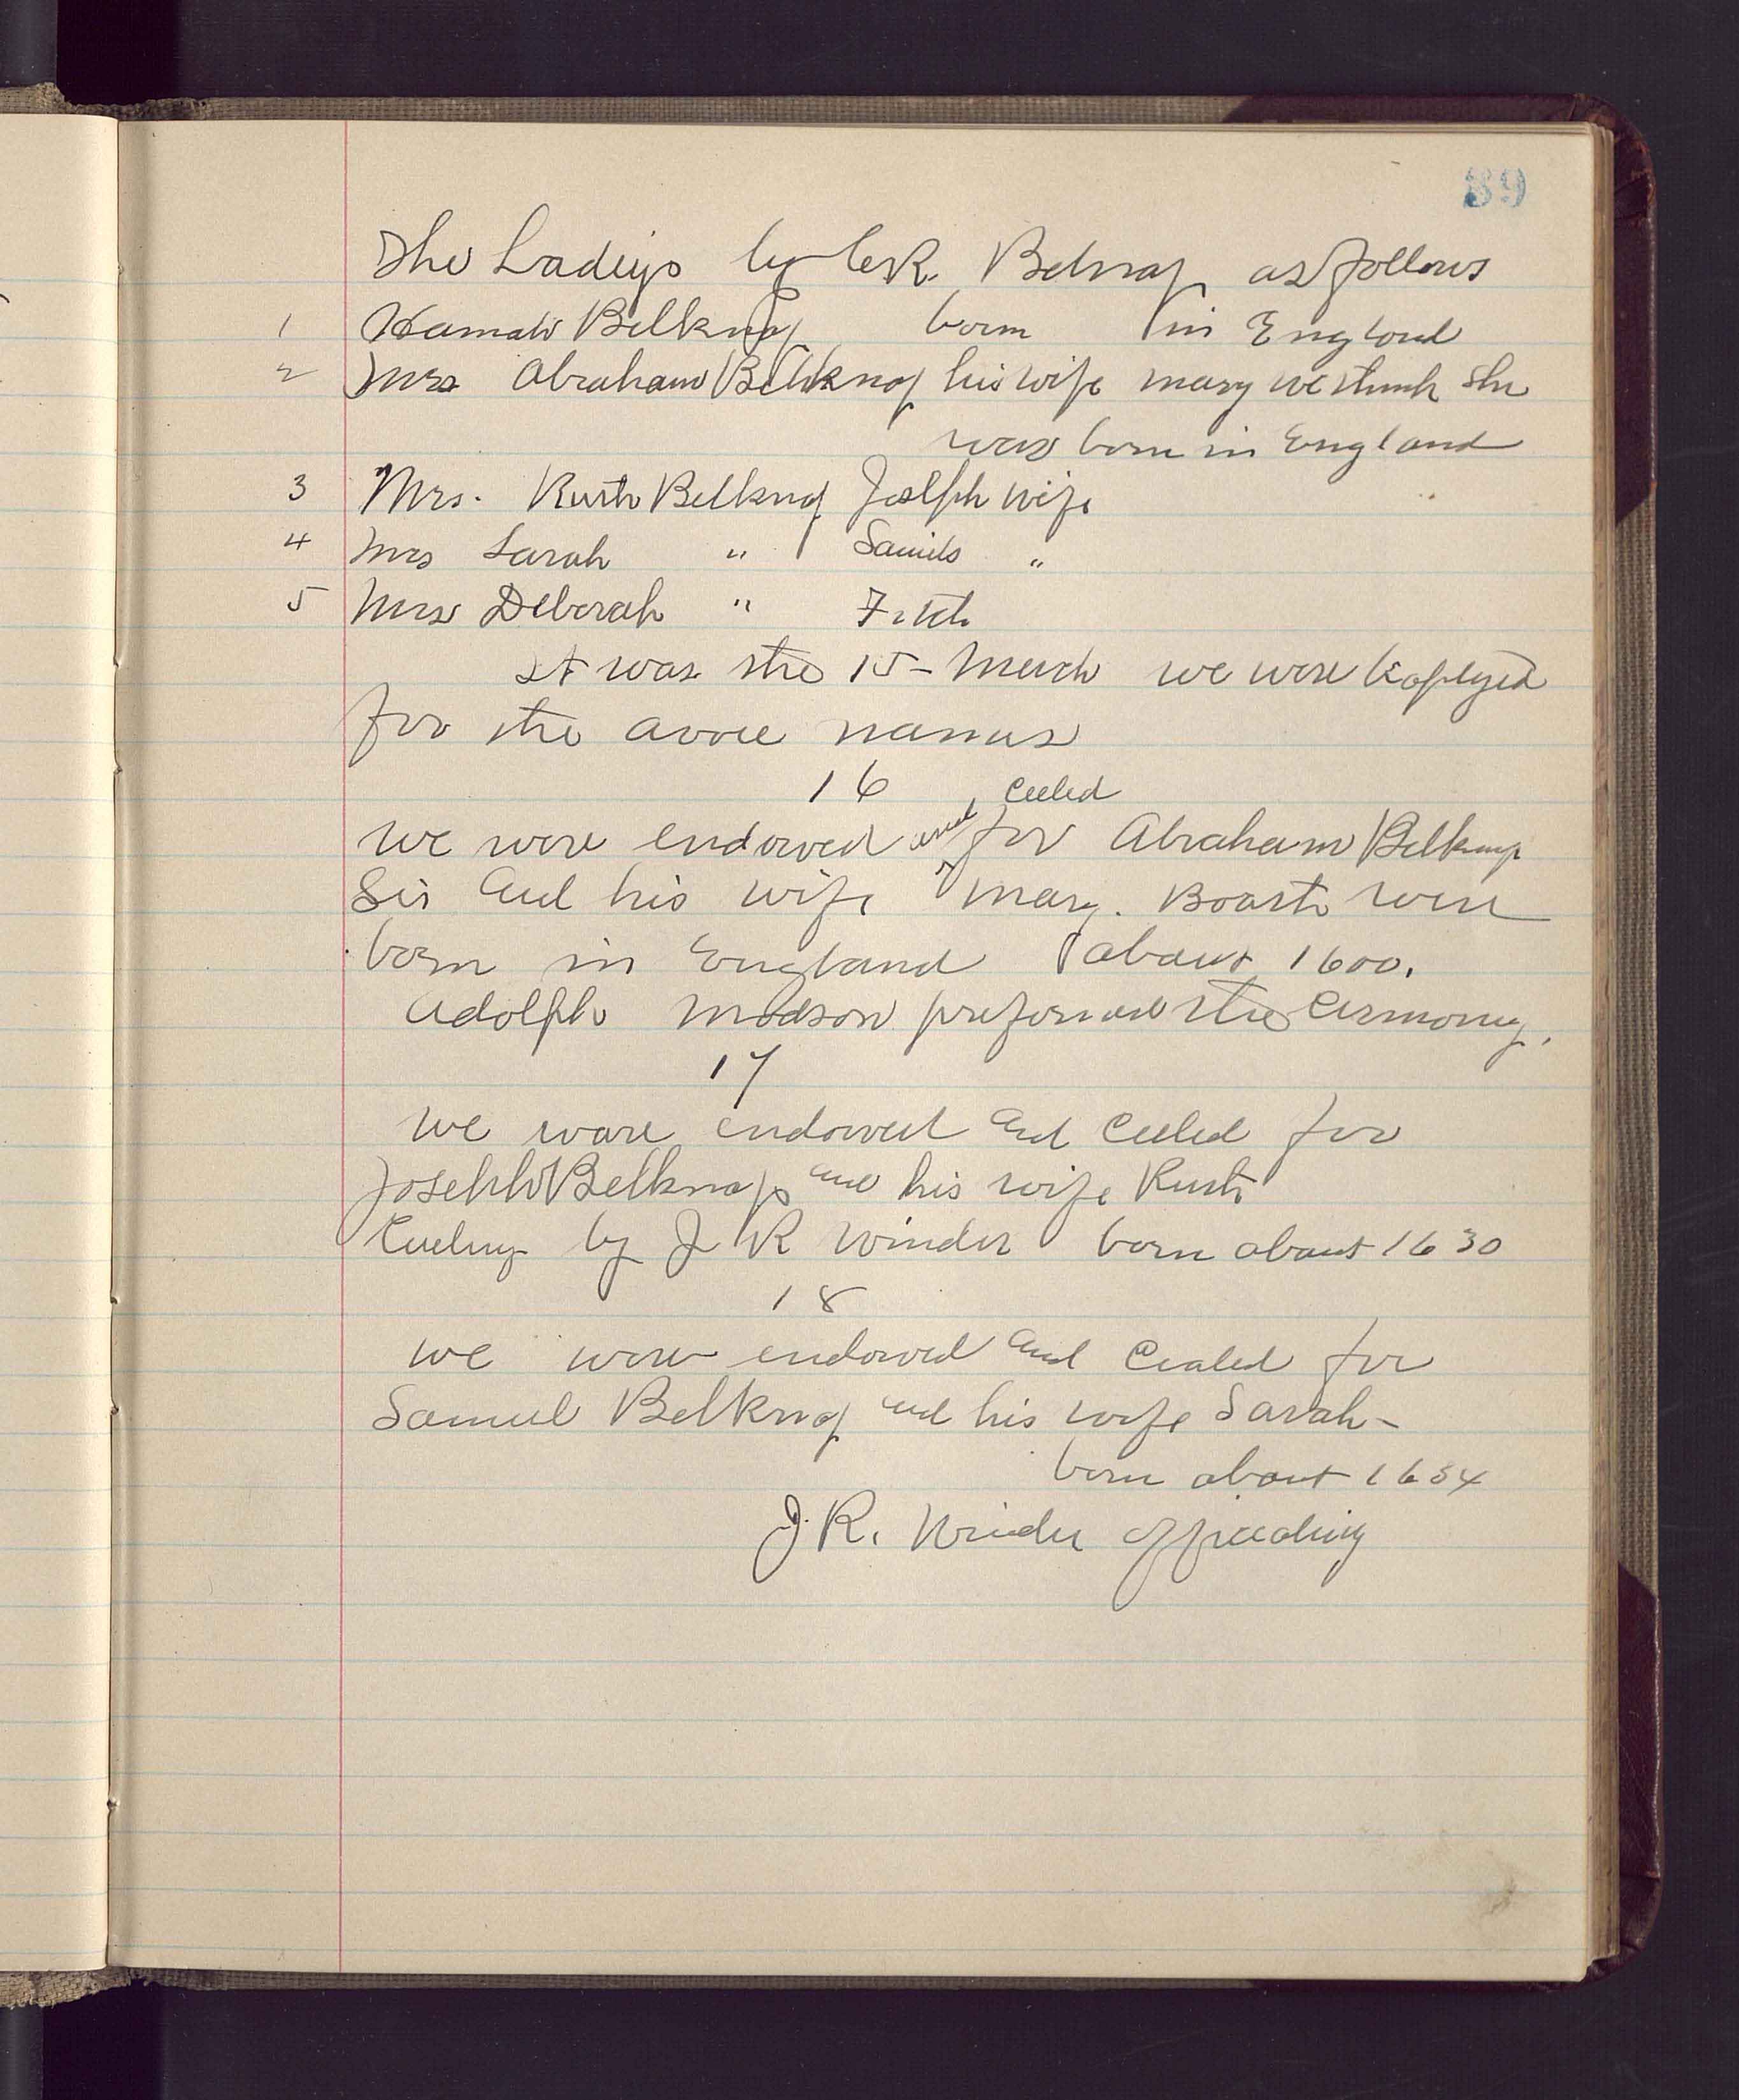 89
The Ladiys by C. R. Belnap as follows
1 Hannah Belknap born in England
2 Mrs Abraham Belknap his wife mary we think she
was born in England
3 Mrs. Ruth Belknap Joseph wife
4 Mrs Sarah " Samils "
5 Mrs Deborah " Fitch
It was the 15 - March we were Bapteyed
for the above names
16
we were endowed and ceeled for Abraham Belknap
Sir and his wife Mary. Boath were
born in England about 1600.
Adolph Madson preformed the Cermony.
17
we ware endowed and Ceeled for
Joseph Belknap and his wife Ruth
Ceeling by J R Winder born about 1630
18
we were endowed and Cealed for
Samuel Belknap and his wife Sarah -
born about 1654
J. R. Winder